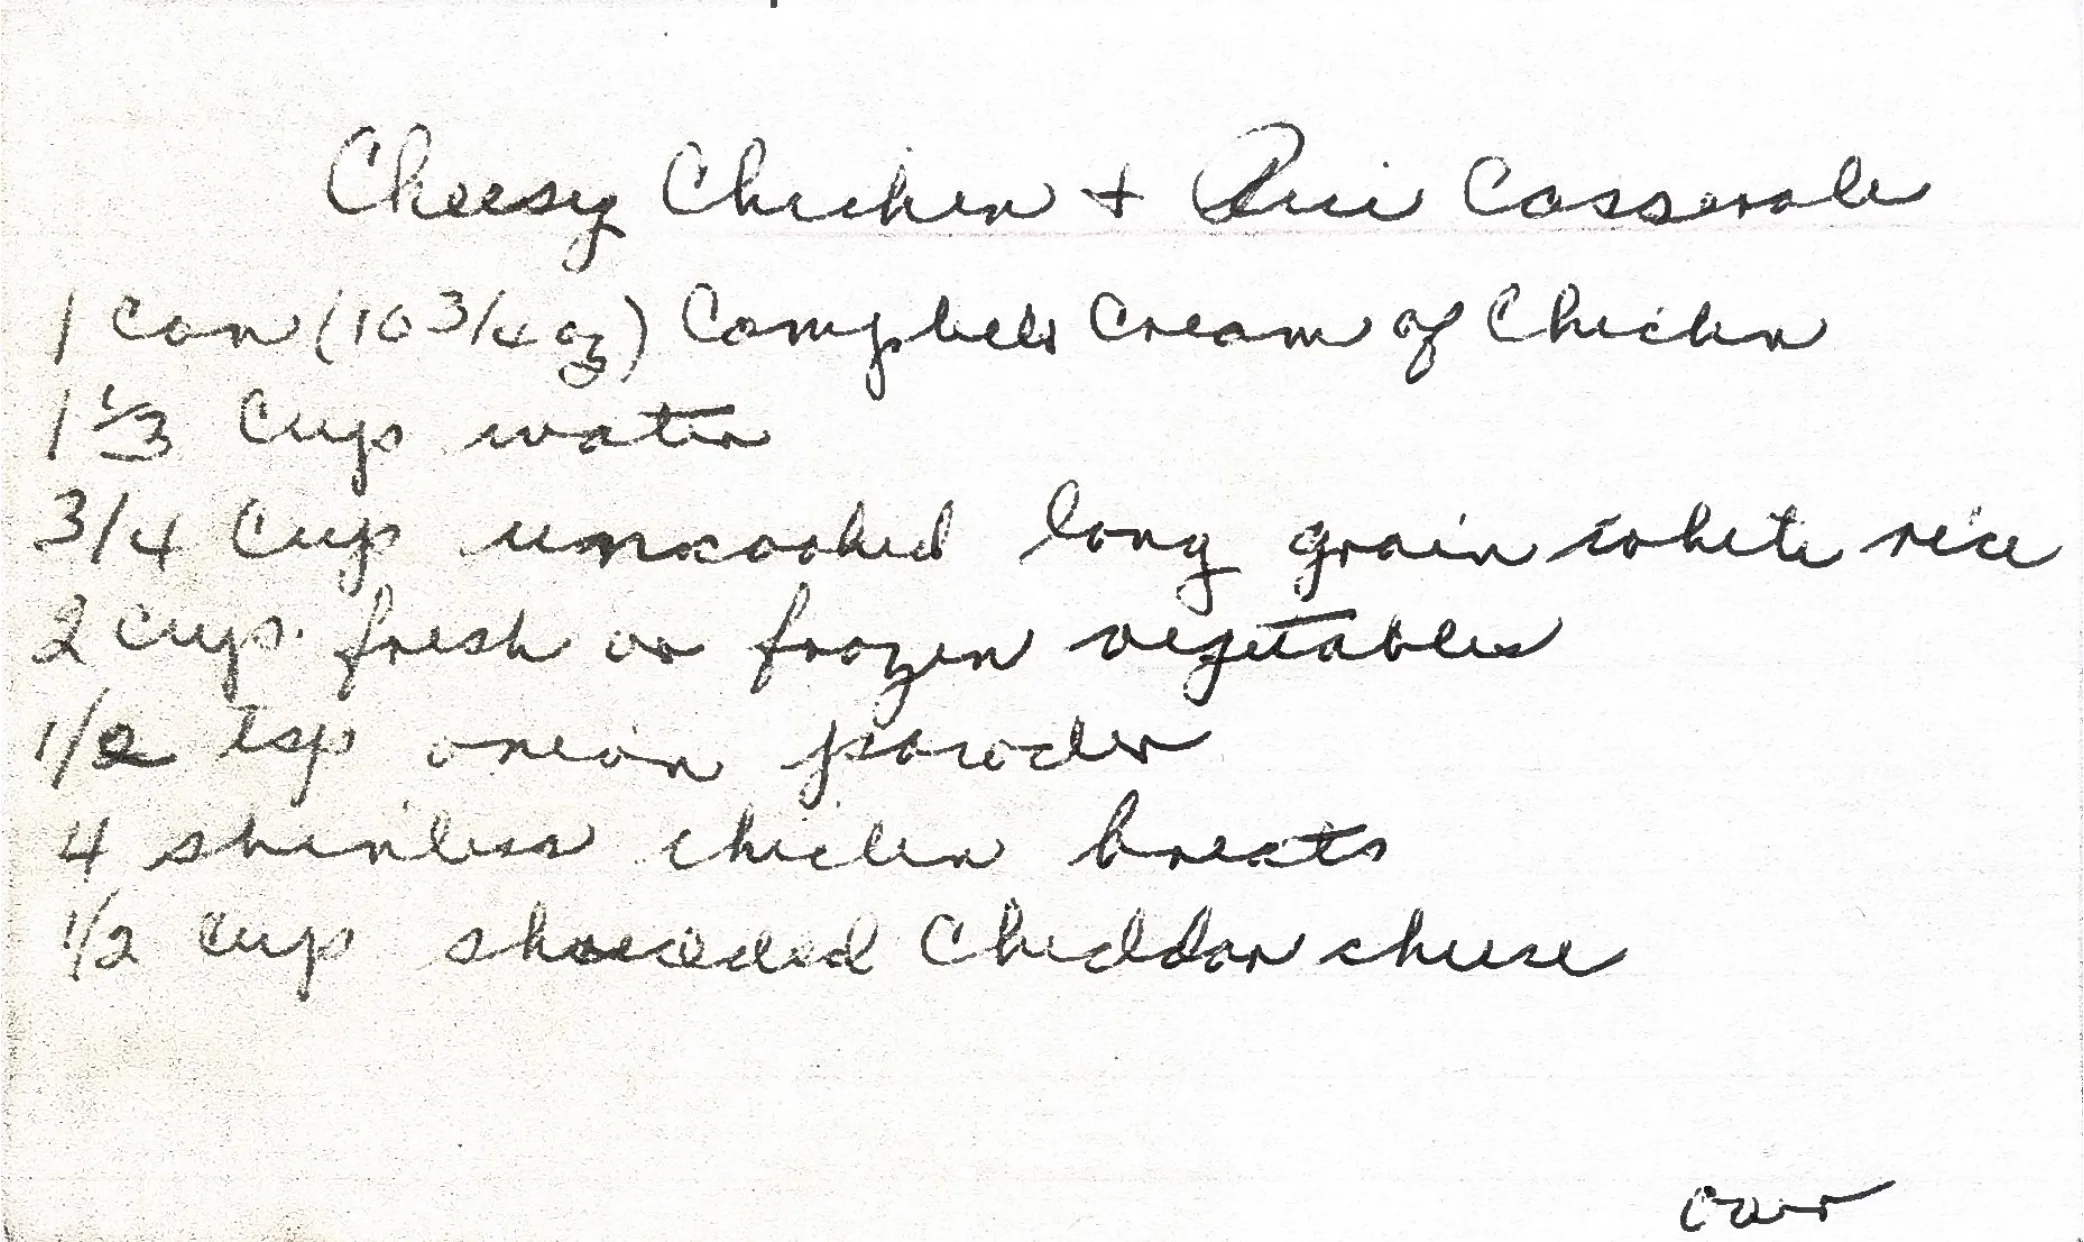 Cheesy Chicken + Rice Casserole
1 can (10 3/4 oz) Campbells Cream of Chicken
1 1/3 Cup water
3/4 Cup uncooked long grain white rice
2 cups fresh or frozen vegetables
1/2 tsp onion powder
4 skinless chicken breats
1/2 cup shredded Cheddar cheese
over